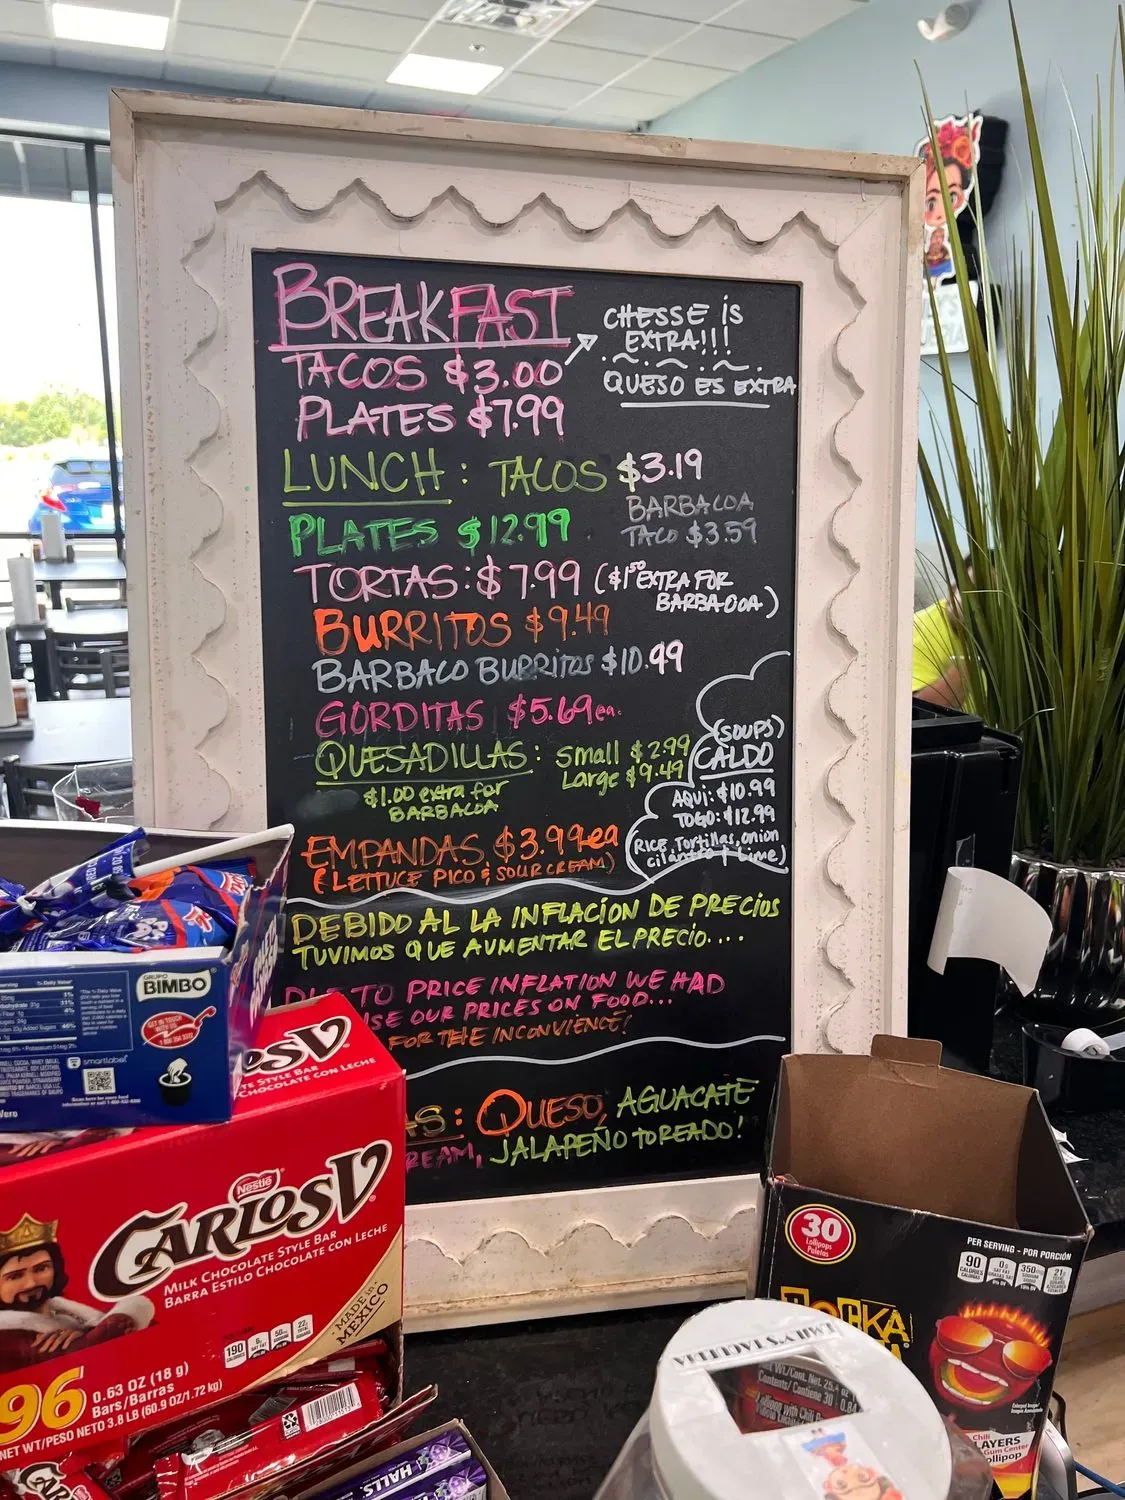 BREAKFAST
TACOS $3.00
PLATES $7.99
CHESSE is
EXTRA!!!
QUESO ES EXTRA
LUNCH: TACOS $3.19
BARBACOA
TACO $3.59
PLATES $12.99
TORTAS: $7.99 ($1.50 EXTRA FOR
BARBACOA)
BURRITOS $9.49
BARBACO BURRITOS $10.99
GORDITAS $5.69ea.
QUESADILLAS: Small $2.99
Large $9.49
$1.00 extra for
BARBACOA
(SOUPS)
CALDO
AQUI: $10.99
TOGO: $12.99
(RICE, Tortillas, onion
cilantro & Lime)
EMPANDAS $3.99ea
(LETTUCE PICO & SOUR CREAM)
DEBIDO AL LA INFLACION DE PRECIOS
TUVIMOS QUE AUMENTAR EL PRECIO....
DUE TO PRICE INFLATION WE HAD
ISE OUR PRICES ON FOOD...
FOR THE INCONVIENCE!
AS: QUESO, AGUACATE
REAM, JALAPEÑO TOREADO!
GRUPO
BIMBO
GET IN TOUCH
WITH US
smartlabel
ESV
TE STYLE BAR
CHOCOLATE CON LECHE
Nestlé
CARLOS V
MILK CHOCOLATE STYLE BAR
BARRA ESTILO CHOCOLATE CON LECHE
MADE IN
MEXICO
190
96
0.63 OZ (18 g)
Bars/Barras
NET WT/PESO NETO 3.8 LB (60.9 OZ/1.72 kg)
HALLS
30
Lollipops
Paletas
PER SERVING - POR PORCIÓN
90
CALORIES
0g
350mg
21g
Chili
LAYERS
Gum Center
Lollipop